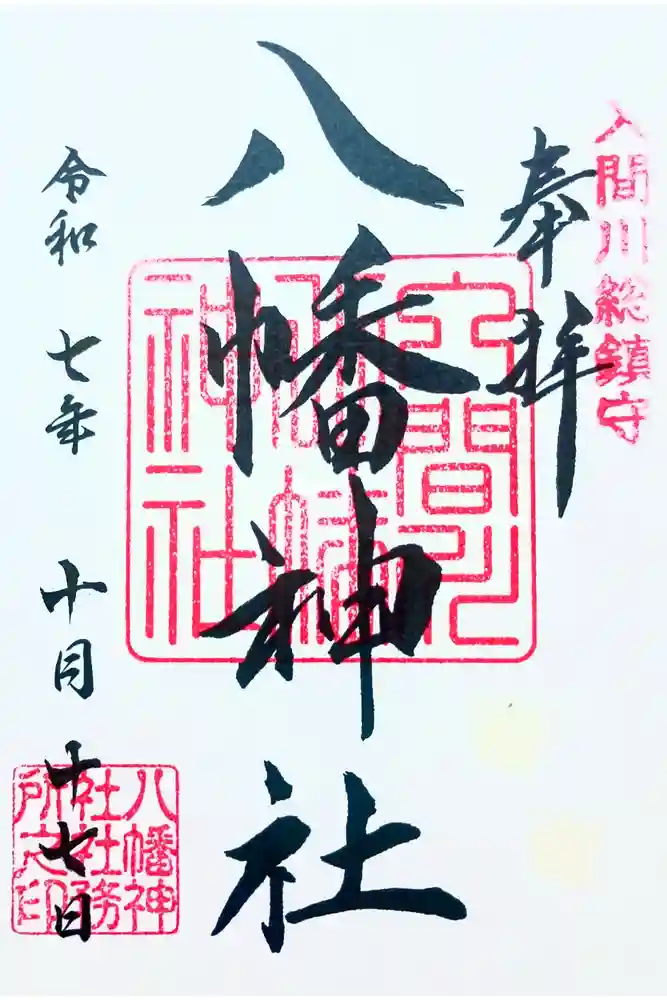 入間川総鎮守
奉拝
八幡神社
入間川
八幡
神社
令和七年十月十七日
八幡神
社社務
所之印